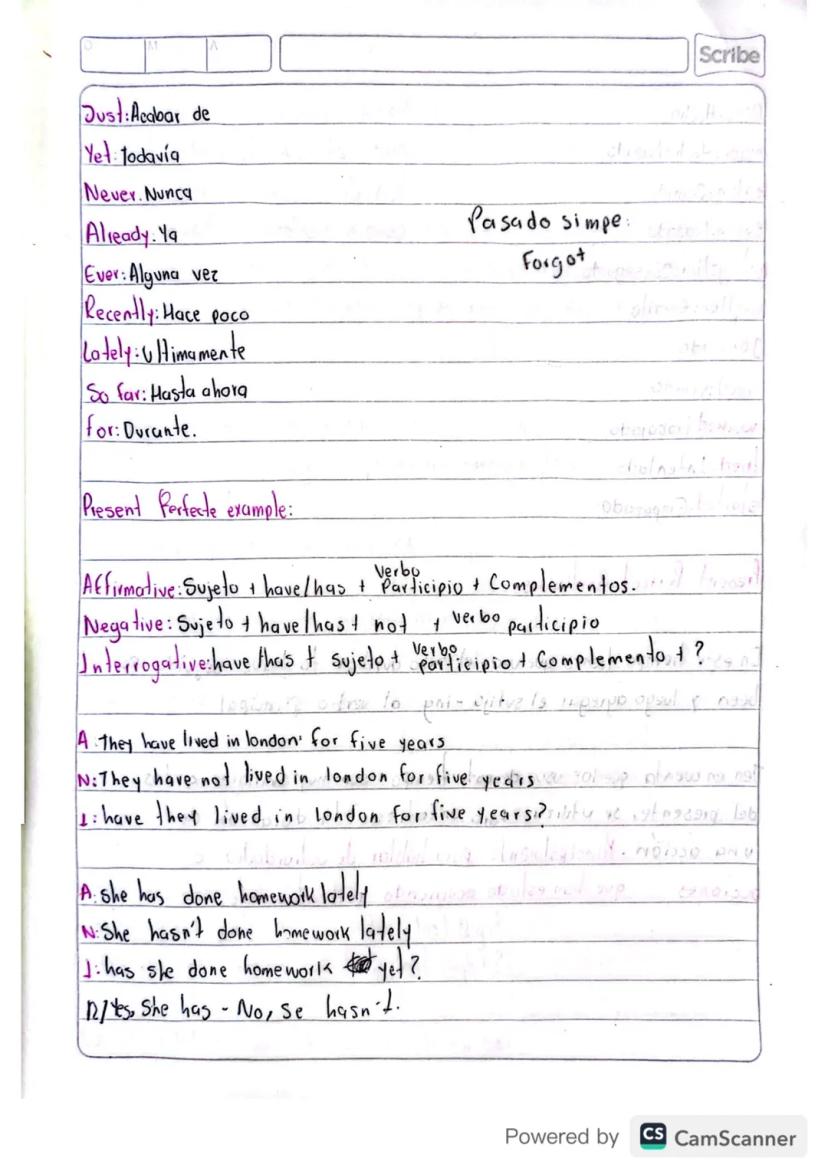 D M A
Scribe
Just: Acabar de
Yet: Todavía
Never. Nunca
Already. Ya
Pasado simpe:
Forgot
Ever: Alguna vez
Recently: Hace poco
Lately: Ultimamente
So far: Hasta ahora
for: Durante.
Present Perfecte example:
Affirmative: Sujeto + have/has + Verbo Participio + Complementos.
Negative: Sujeto + have/has + not + verbo participio
Interrogative: have/has + sujeto + Verbo participio + Complemento + ?
A. They have lived in london for five years
N: They have not lived in london for five years
I: have they lived in london for five years?
A. She has done homework lately
N: She hasn't done homework lately
I: has she done homework yet?
R/Yes, She has - No, se hasn't.
Powered by CS CamScanner